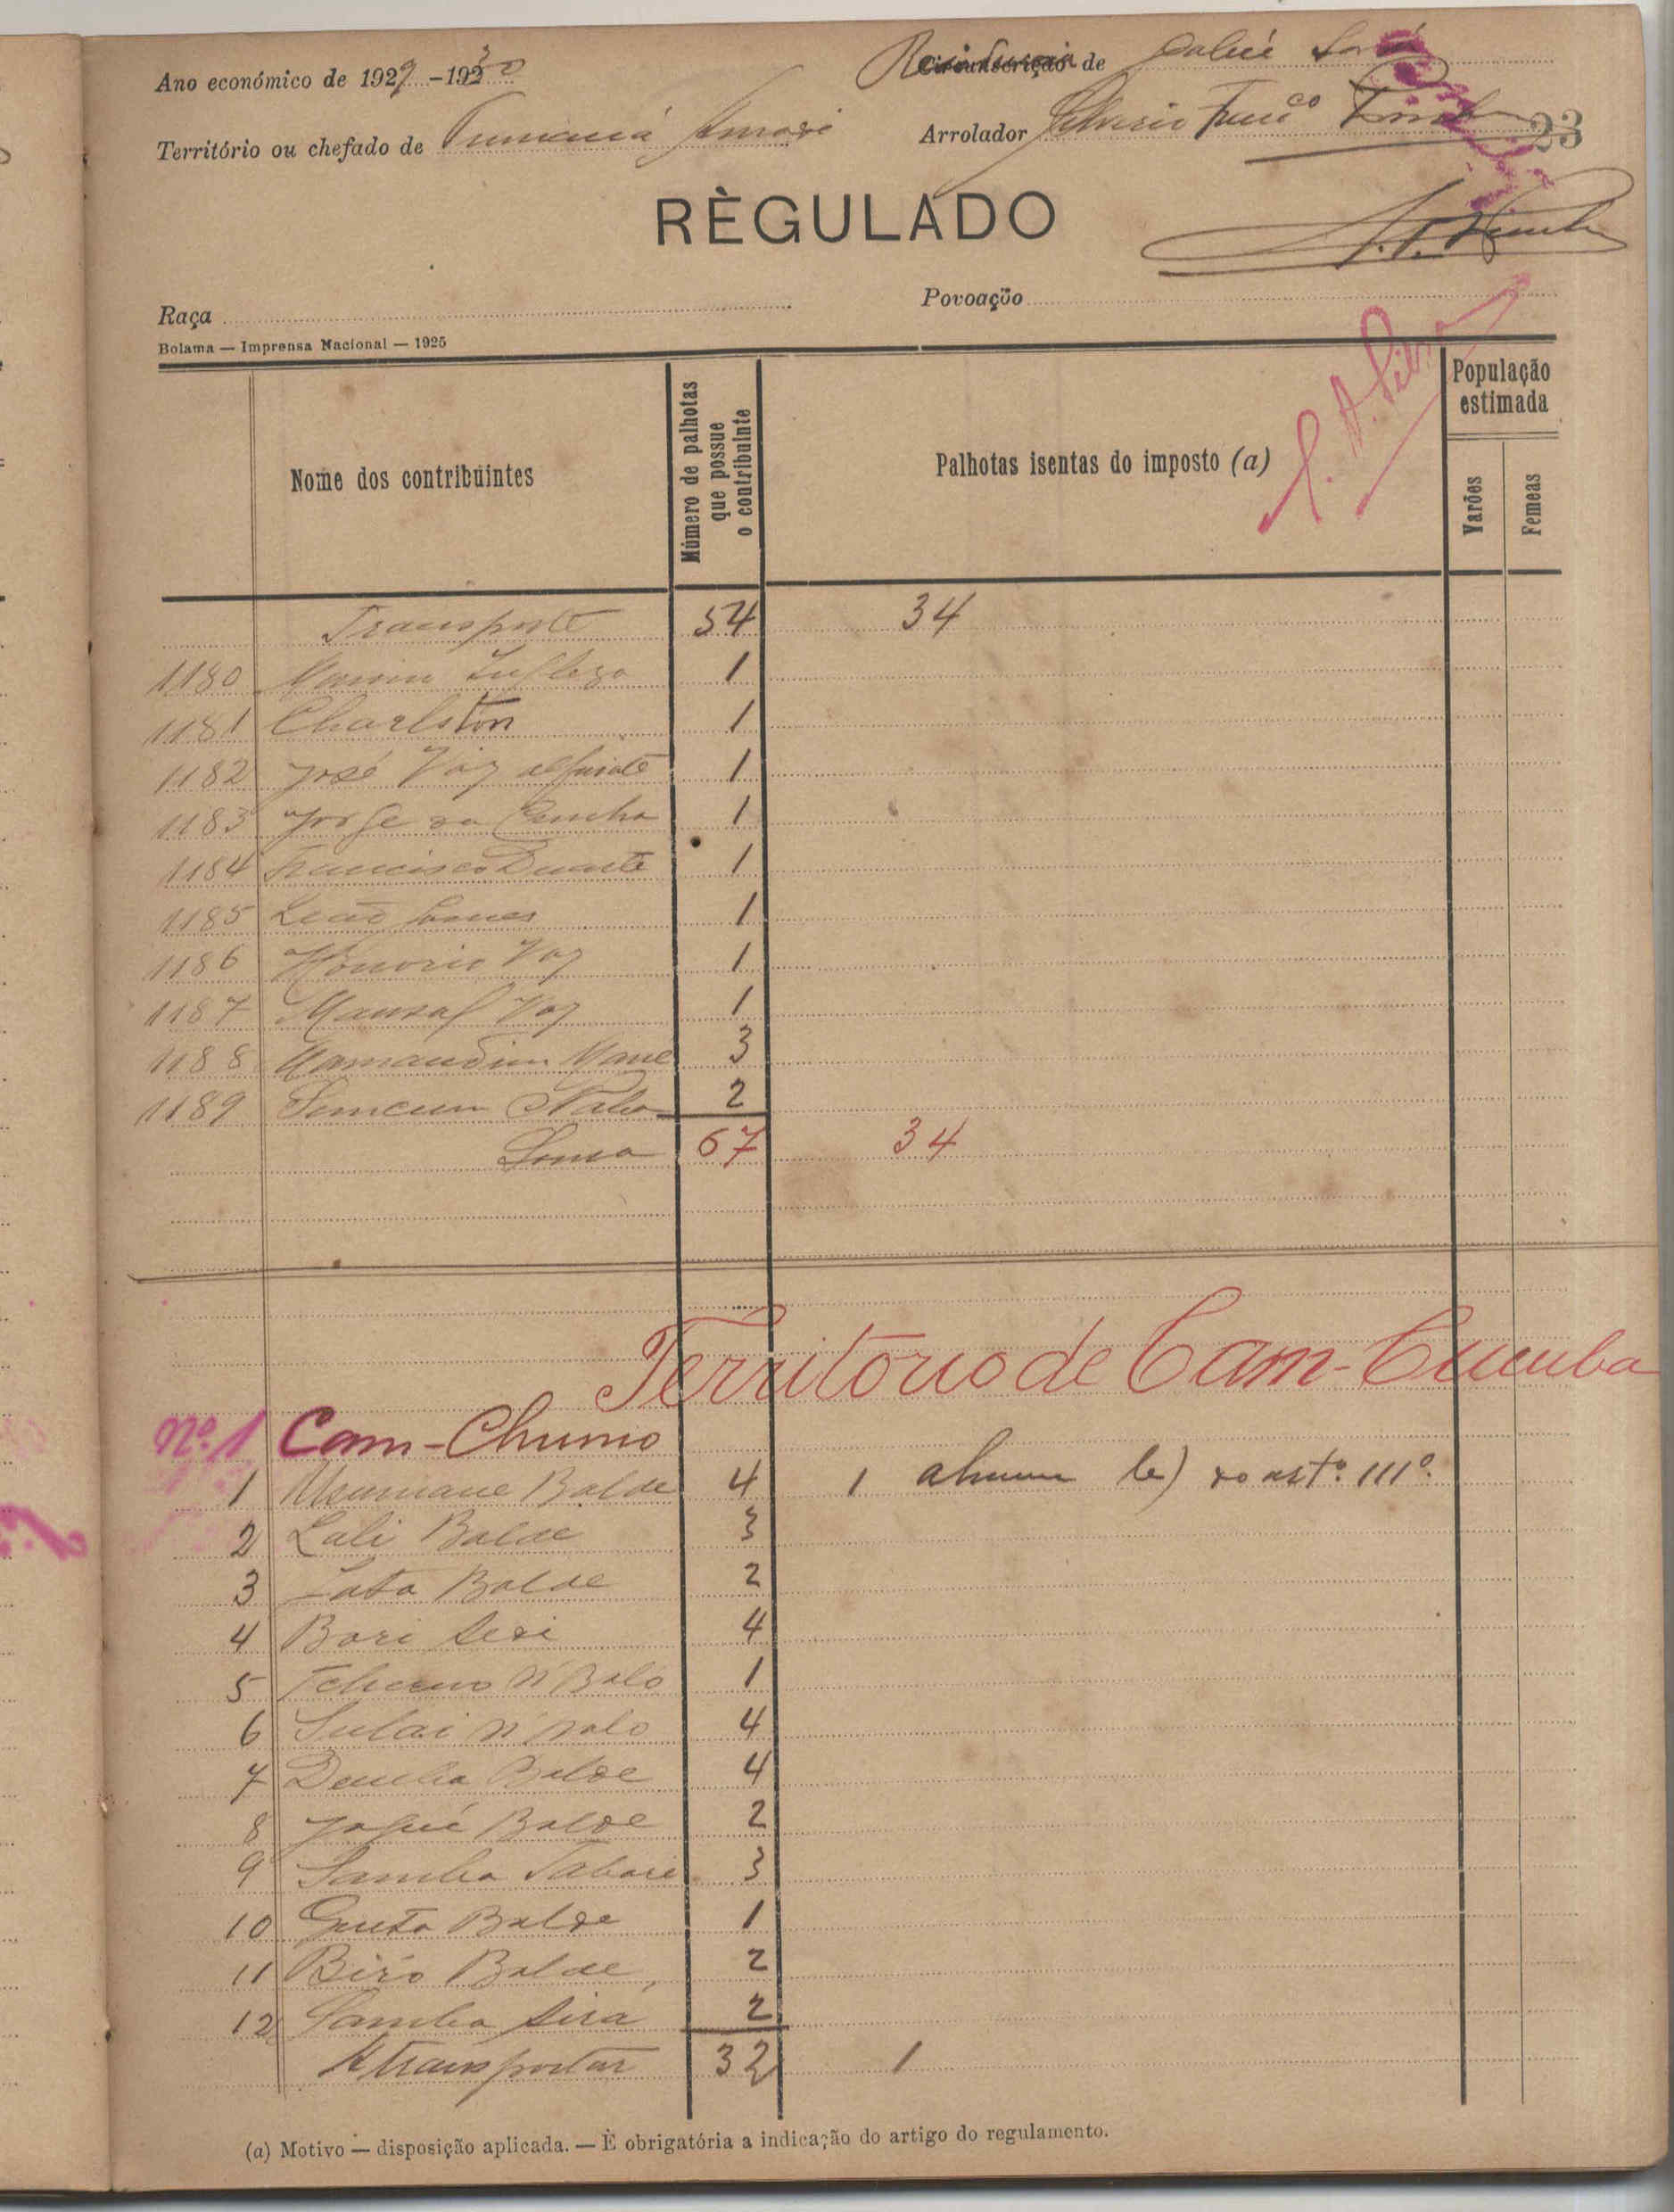 Ano económico de 1929-1930
Residencia de
Território ou chefado de Tumaná
Arrolador Silverio Franco
23
RÈGULADO
Raça
Povoação
Bolama — Imprensa Nacional — 1925
Nome dos contribuintes
Número de palhotas que possue o contribuinte
Palhotas isentas do imposto (a)
População estimada
Varões
Femeas
Transporte 54 34
1180 1
1181 Charlston 1
1182 José Vaz alfaiate 1
1183 Jorge da Cunha 1
1184 Francisco Duarte 1
1185 Leão 1
1186 Honorio Vaz 1
1187 Mansal Vaz 1
1188 Mamandim Mané 3
1189 2
Soma 67 34
Territorio de Cam-Cumba
Nº. 1 Cam-Chumo
1 Balde 4 1 do artº. 111º.
2 Lali Balde 3
3 Balde 2
4 Bori 4
5 Tcherno N'Balo 1
6 Sulai 4
7 Demba Balde 4
8 Balde 2
9 Samba 3
10 Balde 1
11 Biró Balde 2
12 Samba Sirá 2
A transportar 32 1
(a) Motivo — disposição aplicada. — È obrigatória a indicação do artigo do regulamento.